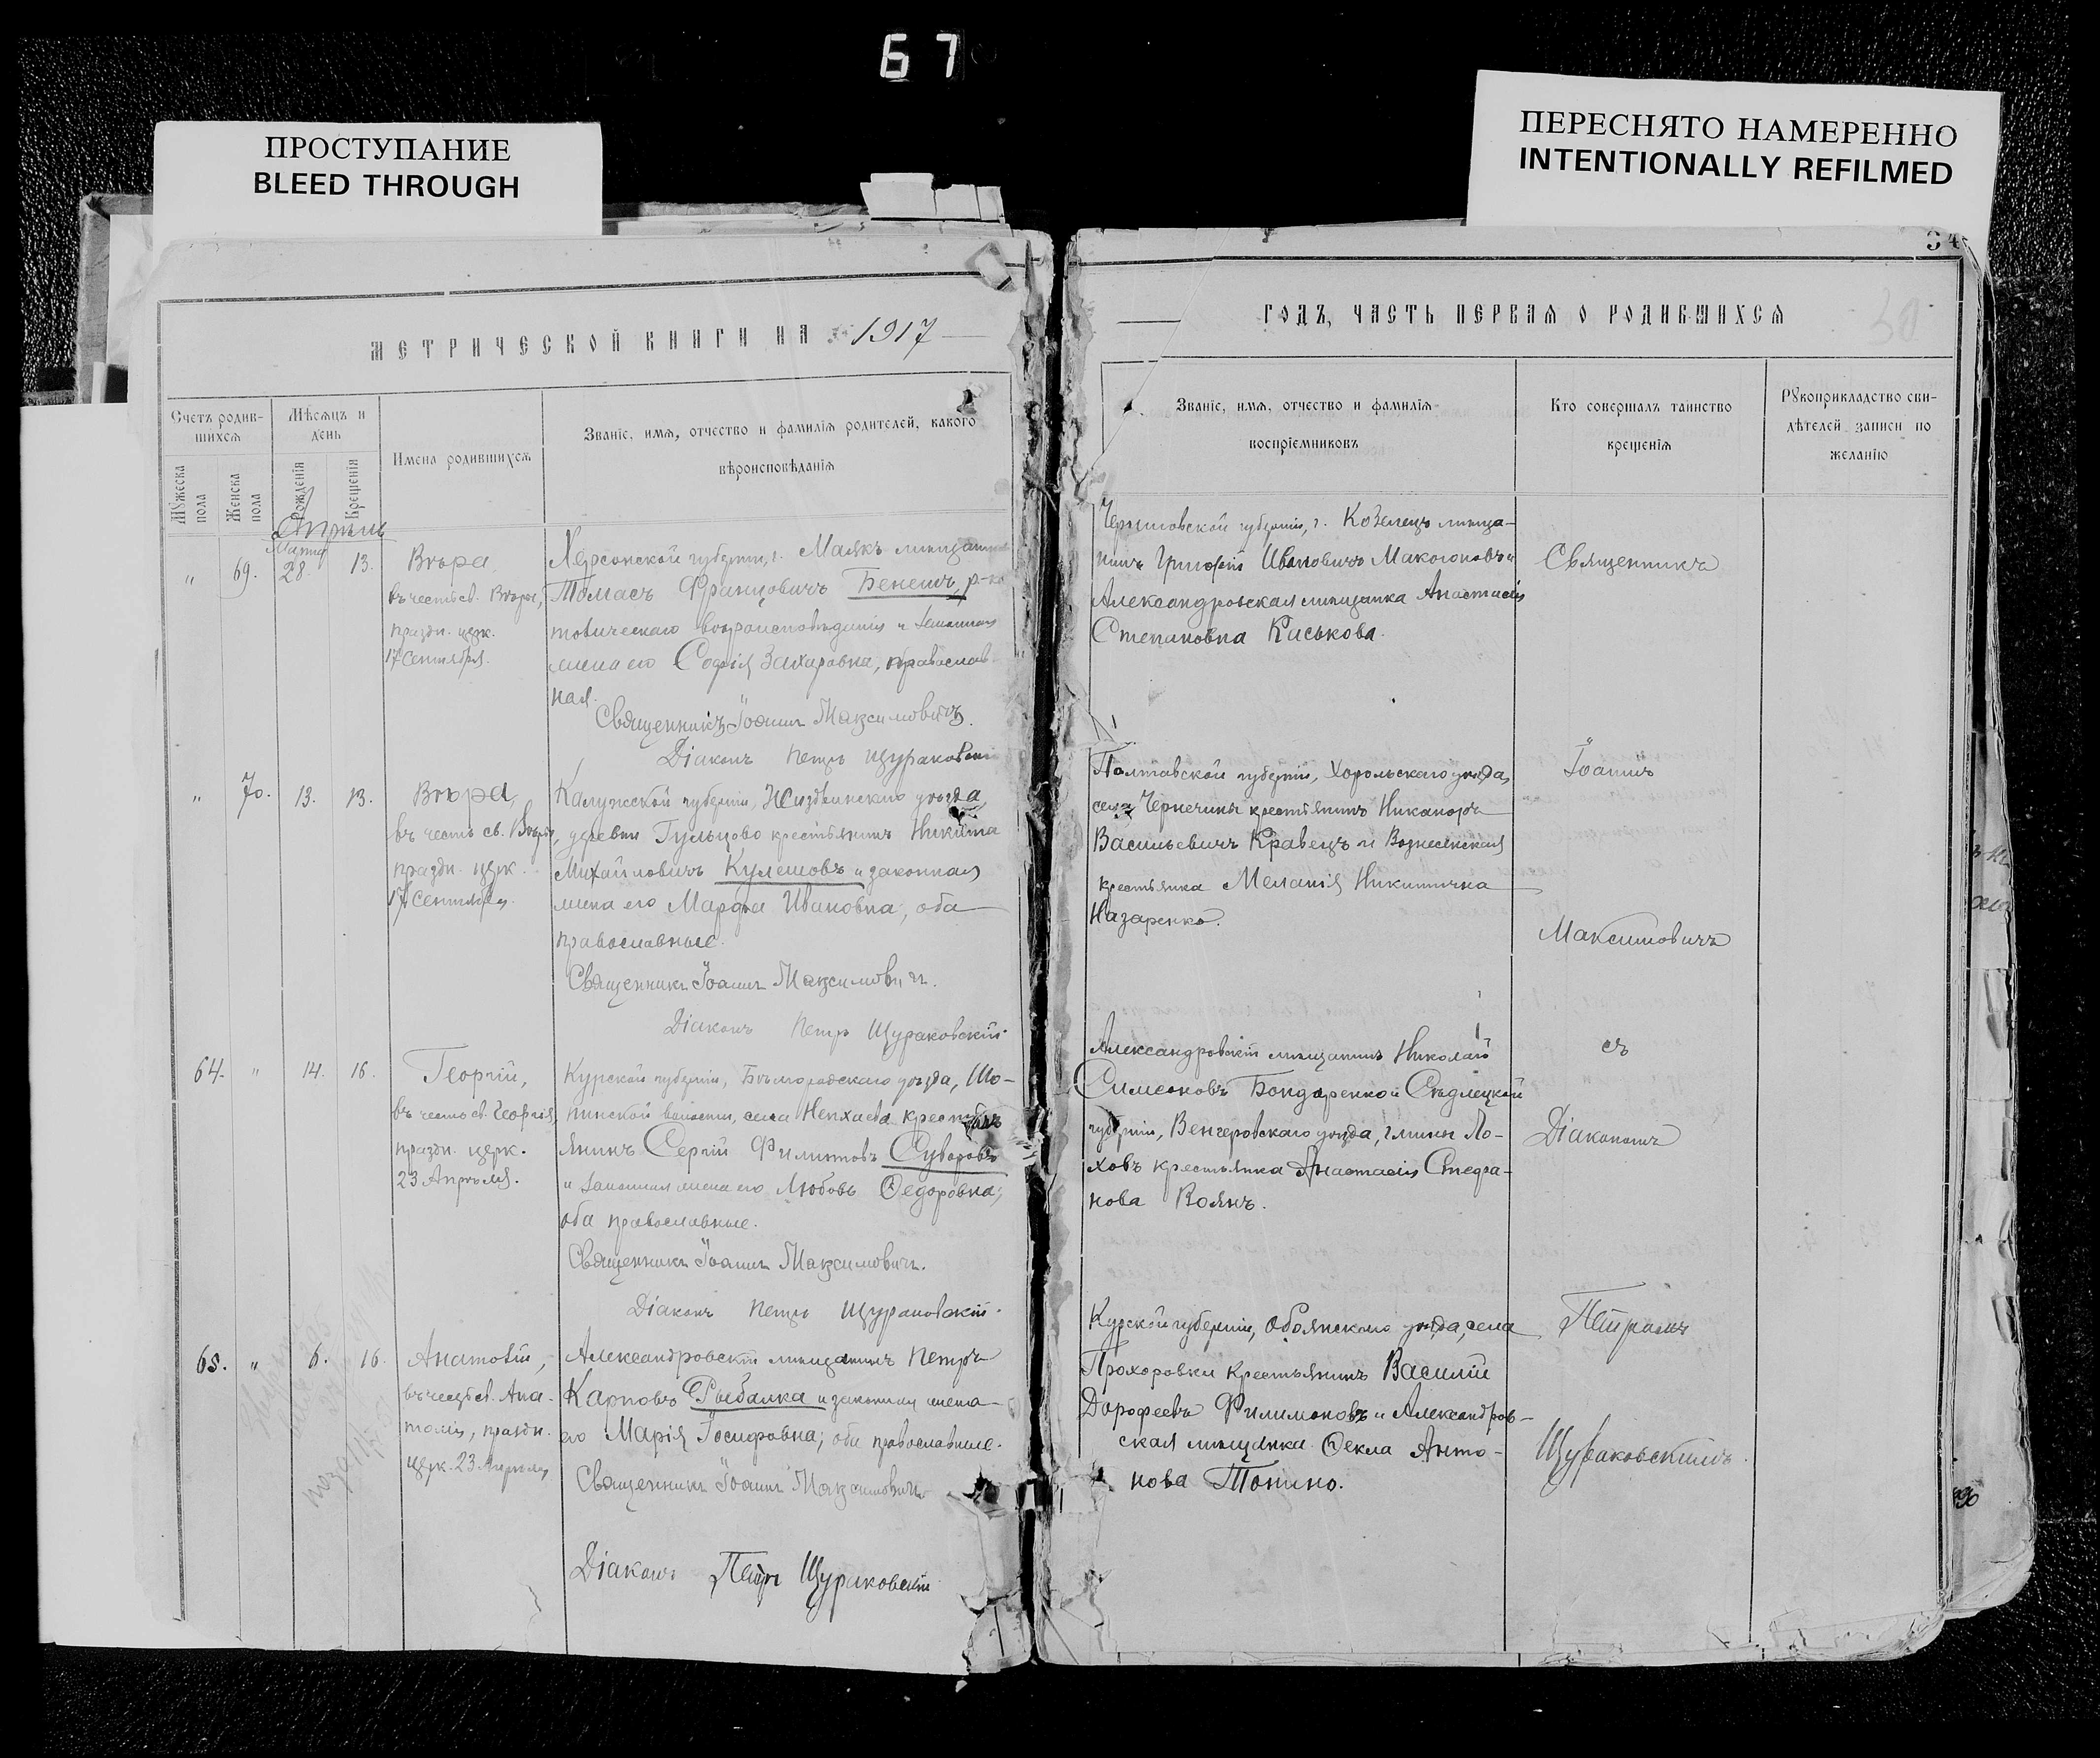 67
ПРОСТУПАНИЕ
BLEED THROUGH
ПЕРЕСНЯТО НАМЕРЕННО
INTENTIONALLY REFILMED
34
МЕТРИЧЕСКОЙ КНИГИ НА 1917
Счетъ родив-
шихся
Мѣсяцъ и
день
Имена родившихся
Званіе, имя, отчество и фамилія родителей, какого
вѣроисповѣданія
Мужеска
пола
Женска
пола
Рожденія
Крещенія
Апрѣль
Марта
„ 69. 28. 13.
Вѣра,
въ честь св. Вѣры,
праздн. церк.
17 Сентября.
Херсонской губерніи, г. Маякъ мѣщанинъ
Томасъ Францовичъ Бенешъ, р-ка
толическаго вѣроисповѣданія и законная
жена его Софія Захаровна, православ-
ная.
Священникъ Іоаннъ Максимовичъ.
Діаконъ Петръ Щураковскій
„ 70. 13. 13.
Вѣра,
въ честь св. Вѣры,
праздн. церк.
17 Сентября.
Калужской губерніи, Жиздринскаго уѣзда
деревни Гульцово крестьянинъ Никита
Михайловичъ Кулешовъ и законная
жена его Марфа Ивановна, оба
православные.
Священникъ Іоаннъ Максимовичъ.
Діаконъ Петръ Щураковскій.
64. „ 14. 16.
Георгій,
въ честь св. Георгія,
праздн. церк.
23 Апрѣля.
Курской губерніи, Бѣлгородскаго уѣзда, Шо-
пинской волости, села Непхаева крестьянинъ
янинъ Сергій Филиповъ Суворовъ
и законная жена его Любовь Ѳедоровна;
оба православные.
Священникъ Іоаннъ Максимовичъ.
Діаконъ Петръ Щураковскій.
65. „ 6. 16.
Анатолій,
въ честь св. Ана-
толія, праздн.
церк. 23 Апрѣля
Александровскій мѣщанинъ Петръ
Карповъ Рыбалка и законная жена
его Марія Іосифовна; оба православные.
Священникъ Іоаннъ Максимовичъ
Діаконъ Петръ Щураковскій
ГОДЪ, ЧАСТЬ ПЕРВАЯ О РОДИВШИХСЯ
30
Званіе, имя, отчество и фамилія
воспріемниковъ
Кто совершалъ таинство
крещенія
Рукоприкладство сви-
дѣтелей записи по
желанію
Черниговской губерніи, г. Козелецъ мѣща-
нинъ Григорій Ивановичъ Макогоновъ и
Александровская мѣщанка Анастасія
Степановна Киськова.
Полтавской губерніи, Хорольскаго уѣзда,
села Чернечины крестьянинъ Никаноръ
Васильевичъ Кравецъ и Вознесенская
крестьянка Меланія Никитична
Назаренко.
Александровскій мѣщанинъ Николай
Симеоновъ Бондаренко и Сѣдлецкой
губерніи, Венгеровскаго уѣзда, гмины Ло-
ховъ крестьянка Анастасія Стефа-
нова Воянъ.
Курской губерніи, Обоянскаго уѣзда, села
Прохоровки крестьянинъ Василій
Дорофеевъ Филимоновъ и Александров-
ская мѣщанка Ѳекла Анто-
нова Топино.
Священникъ
Іоаннъ
Максимовичъ
съ
Діакономъ
Петромъ
Щураковскимъ.